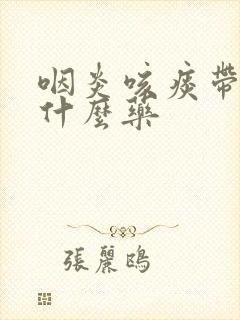 咽炎咳痰帶
什麼藥
張麗鴎